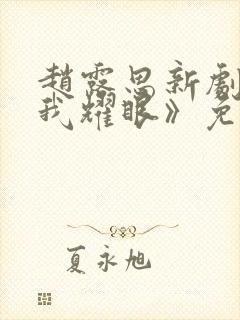 趙露思新劇
我耀眼》免
夏永旭